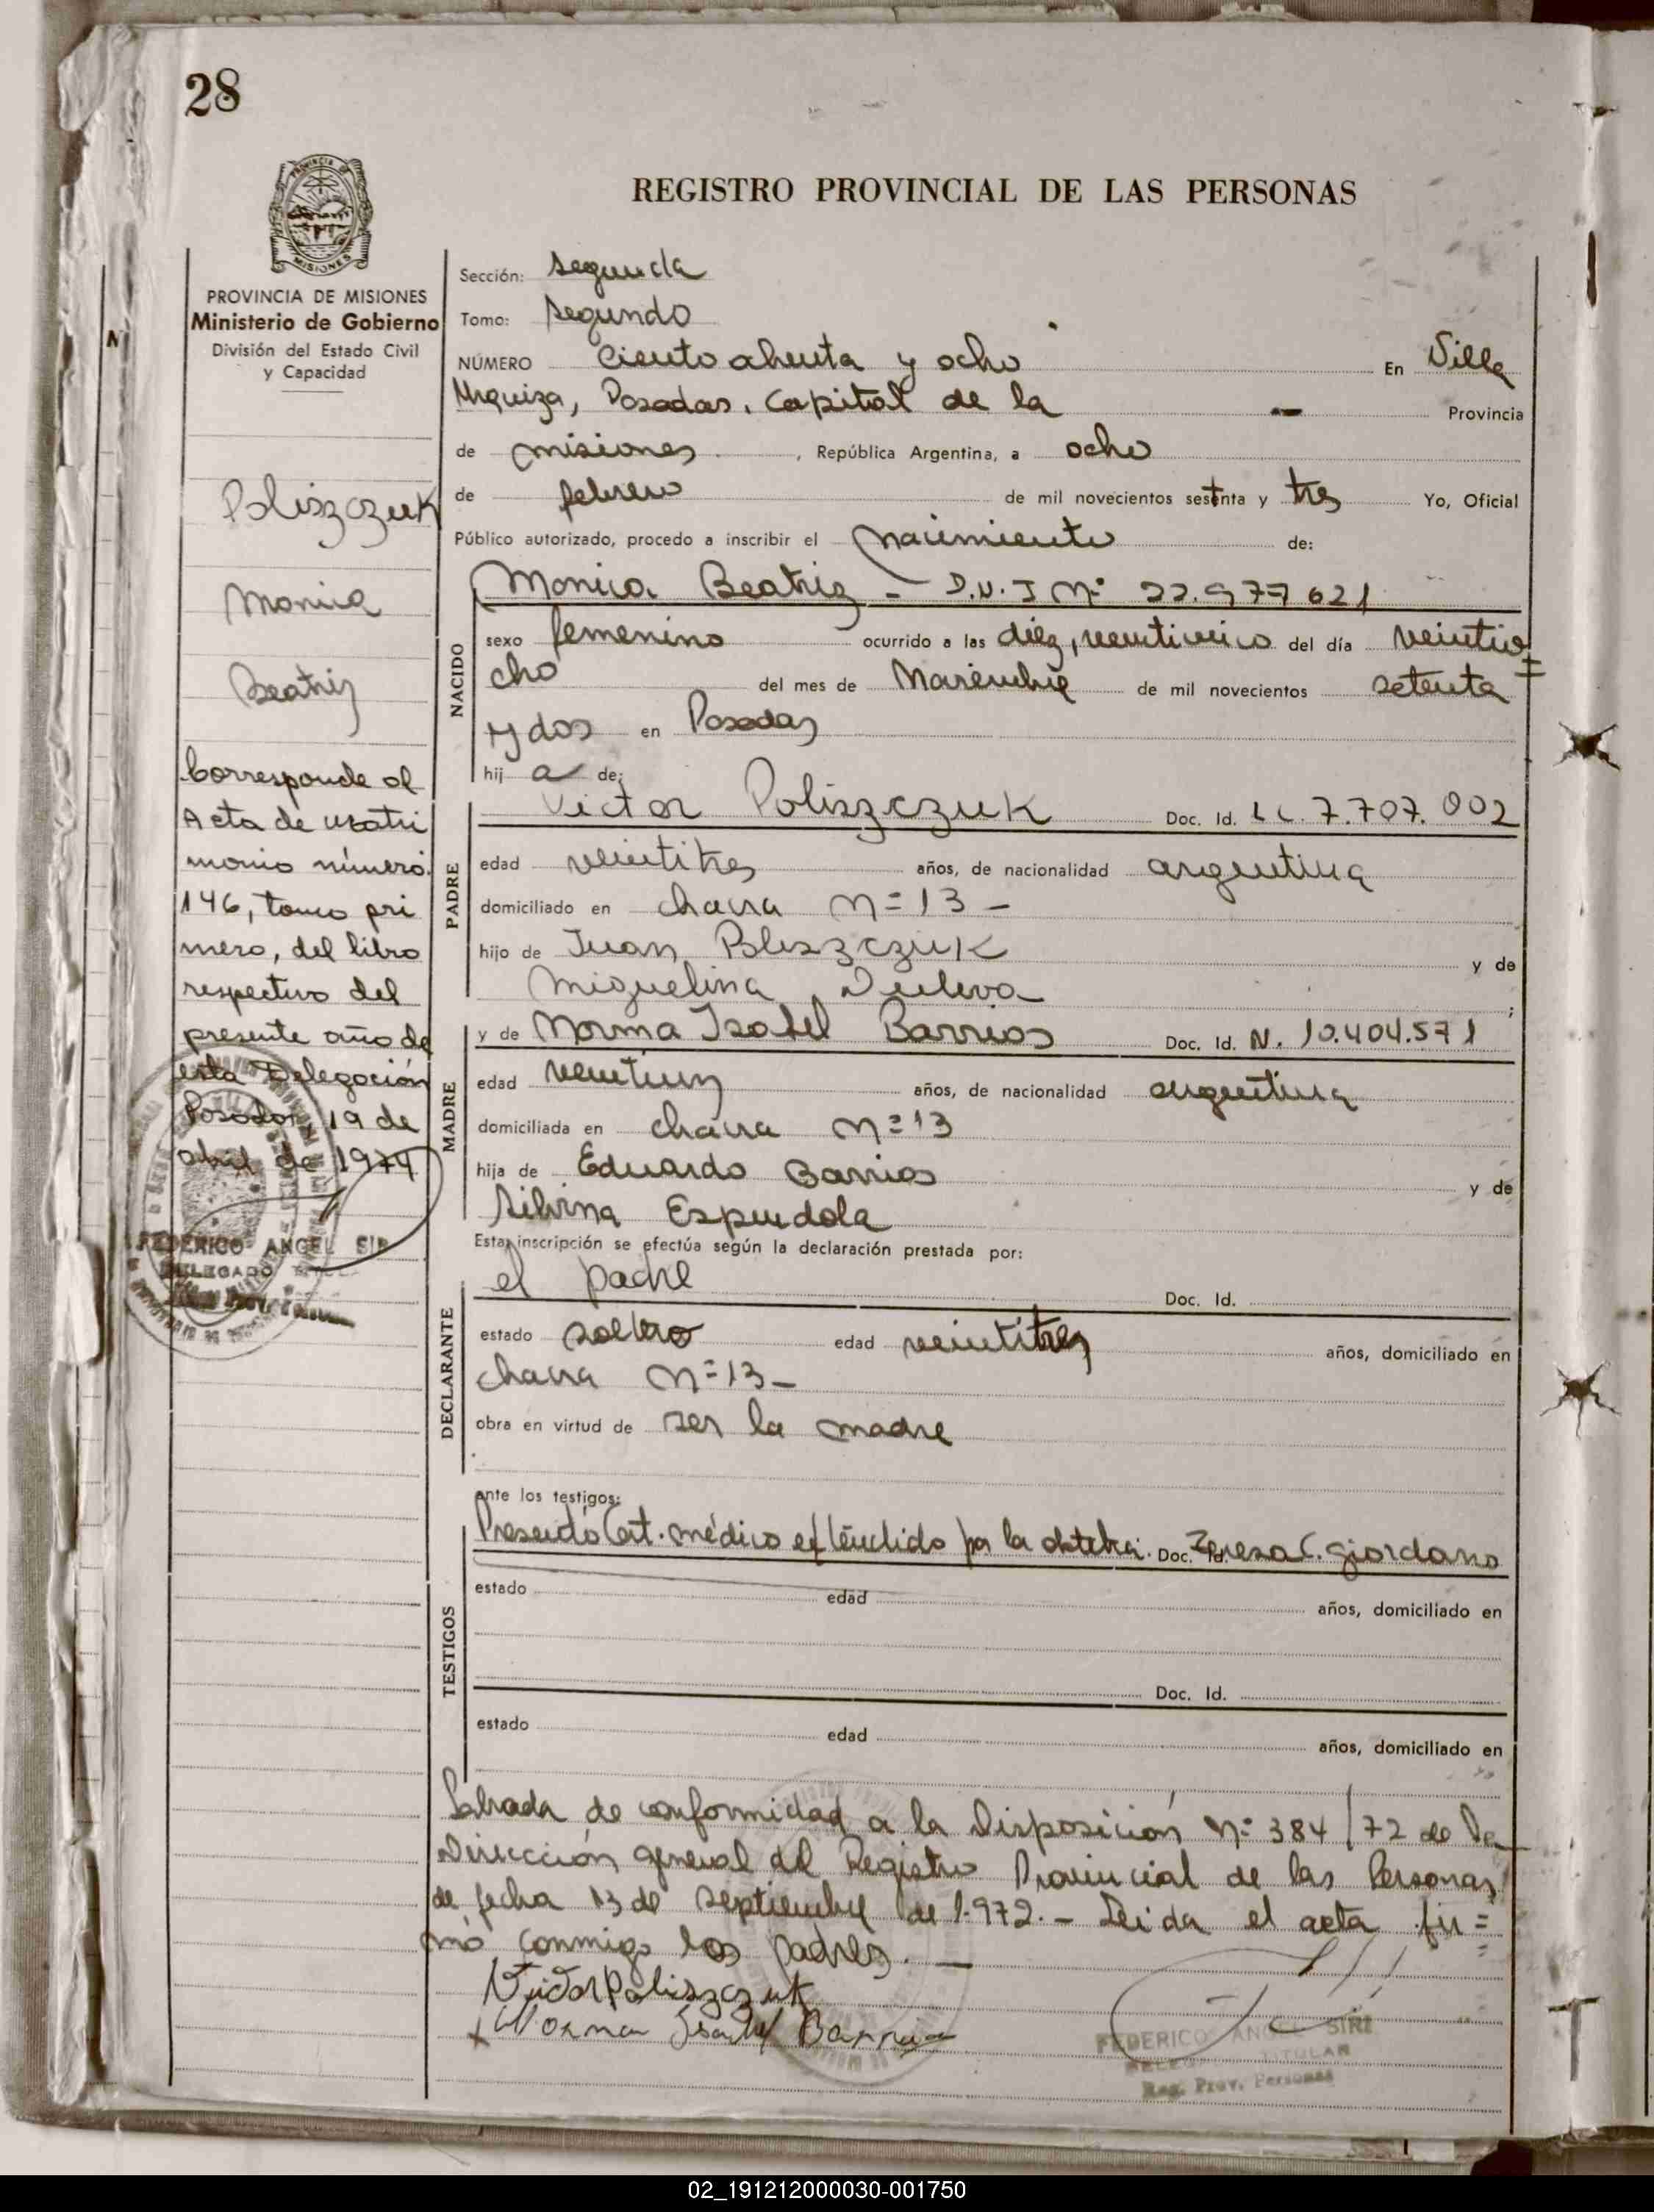 28
REGISTRO PROVINCIAL DE LAS PERSONAS
PROVINCIA DE MISIONES
Ministerio de Gobierno
División del Estado Civil
y Capacidad
Poliszczuk
Monica
Beatriz
Corresponde al
Acta de matri
monio número
146, tomo pri
mero, del libro
respectivo del
presente año de
esta Delegación
Posadas, 19 de
abril de 1974
FEDERICO ANGEL SIRI
DELEGADO
Sección: segunda
Tomo: segundo
NÚMERO Ciento ochenta y ocho En Villa
Urquiza, Posadas, Capital de la Provincia
de misiones, República Argentina, a ocho
de febrero de mil novecientos setenta y tres Yo, Oficial
Público autorizado, procedo a inscribir el nacimiento de:
Monica Beatriz - D.N.I Nº 22.977621
NACIDO
sexo femenino ocurrido a las diez, veinticinco del día veintio=
cho del mes de Noviembre de mil novecientos setenta
y dos en Posadas
hij a de:
PADRE
Victor Poliszczuk Doc. Id. L.E. 7.707.002
edad veintitres años, de nacionalidad argentina
domiciliado en chacra Nº 13 -
hijo de Juan Poliszczuk y de
Miguelina ;
MADRE
y de Norma Isabel Barrios Doc. Id. N. 10.404.571
edad veintiun años, de nacionalidad argentina
domiciliada en chacra Nº 13
hija de Eduardo Barrios y de
Silvina Espindola
Esta inscripción se efectúa según la declaración prestada por:
DECLARANTE
el padre Doc. Id.
estado soltero edad veintitres años, domiciliado en
chacra Nº 13 -
obra en virtud de ser la madre
ante los testigos:
TESTIGOS
Presentó Cert. médico extendido por la obstetri. Doc. Id. Teresa C. Giordano
estado edad años, domiciliado en
Doc. Id.
estado edad años, domiciliado en
Labrada de conformidad a la Disposición Nº 384/72 de la
Dirección general del Registro Provincial de las Personas
de fecha 13 de septiembre de 1.972. - Leida el acta fir=
mó conmigo los padres. -
Victor Poliszczuk
x Norma Isabel Barrios
FEDERICO ANGEL SIRI
DELEGADO TITULAR
Reg. Prov. Personas
02_191212000030-001750